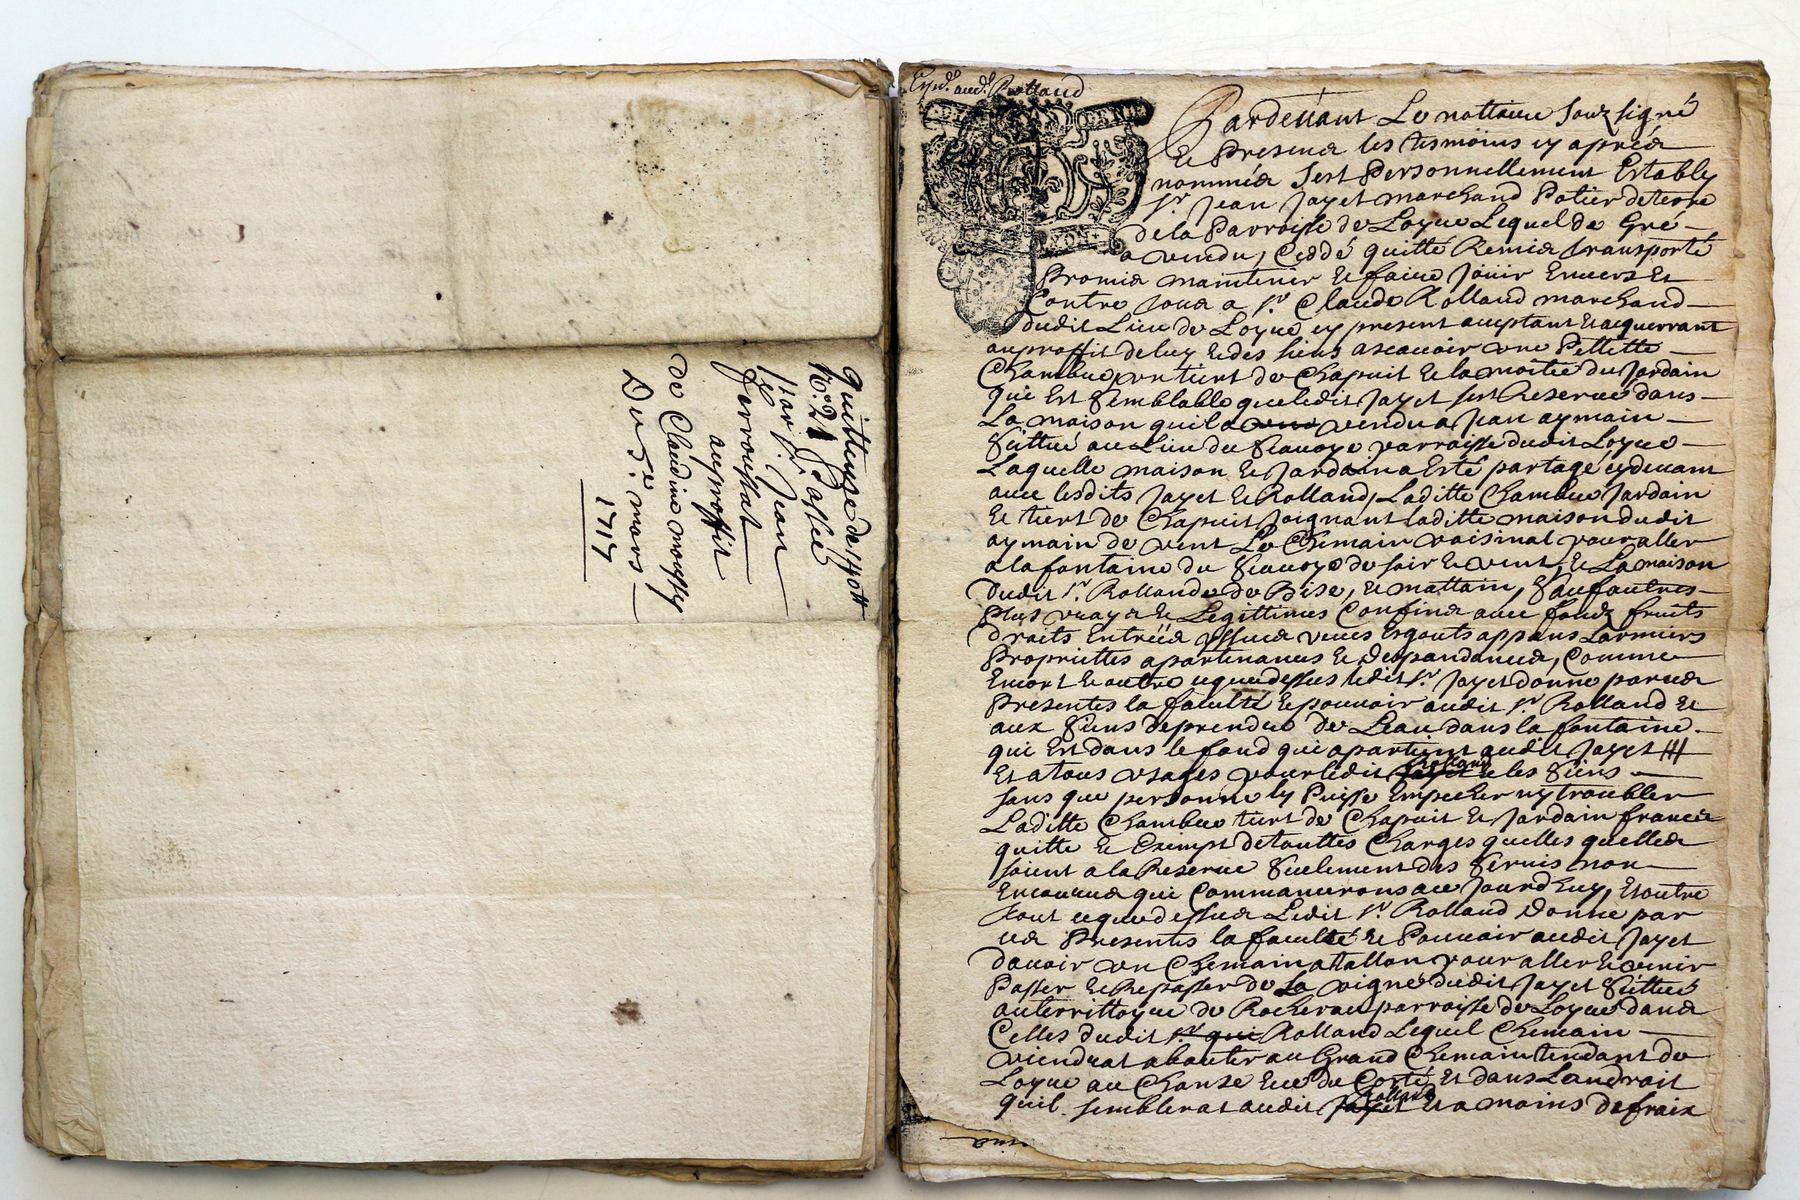 Quittance de 140tt
No. 21 Passée
Par Sr. Jean
Ferroussat
auproffit
de Claudine
Du 5e mars
1717
Expd. aud. Rolland
Pardeuant Le nottaire Souzsigné
Et Presence les tesmoins cy aprés
nommés Sest Personnellement Estably
Sr. Jean Jayet marchand Potier de terre
de la Parroisse de Loyue Lequel de Gré
a vendu, Ceddé quitté Remis transporté
Promis maintenir Et faire Joüir Enuers Et
Contre tous a Sr. Claude Rolland marchand
dudit Lieu de Loyue cy present aceptant Et acquerrant
auproffit de luy Et des siens ascauoir vne Pettitte
Chambre, vn tiert de Chapuit Et la moitié du Jardain
qui Est Semblable queledit Jayet sest Reserué dans
La maison quil a vendu a Jean aymain
Sittué au Lieu du parroisse dudit Loyue
Laquelle maison Et Jardain a Esté partagé cydeuant
auec lesdits Jayet Et Rolland, Laditte Chambre Jardain
Et tiert de Chapuit Joignant laditte maison dudit
aymain de vent Le Chemain voisinal pour aller
a la fontaine du de soir Et vent, Et La maison
Dudit Sr. Rolland de Bise, Et mattain, Sauf autres
Plus vrays Et Legittimes Confins auec fondz fruits
droits Entrées yssues veues Esgouts appans Larmiers
Propriettes apartenances Et despandances, Comme
Encort Et outre cequedessus ledit Sr. Jayet donne par ces
Presentes la faculté Et pouuoir audit Sr. Rolland Et
aux Siens deprendre de Leau dans la fontaine
qui Est dans le fond qui apartient audit Jayet
Et atous vsages pour ledit Rolland Et les Siens
sans que personne ly Puisse Empecher ny troubler
Laditte Chambre tiert de Chapuit Et Jardain francs
quitte Et Exempt detouttes Charges quelles quelles
soient a la Reserue Seulement des Seruis non
Encourus qui Commancerons ace Jourdhuy, Et outre
tout cequedessus Ledit Sr. Rolland donne par
ces Presentes la faculté Et Pouuoir audit Jayet
dauoir vn Chemain atallon pour aller Et venir
Passer Et Repasser de La vigne dudit Jayet Sittué
auterrittoyre de parroisse de Loyue dans
Celles dudit Sr. qui Rolland Lequel Chemain
viendrat abouter au Grand Chemain tendant de
Loyue au Et dans Landroit
quil semblerat audit Rolland Et a moins de fraix